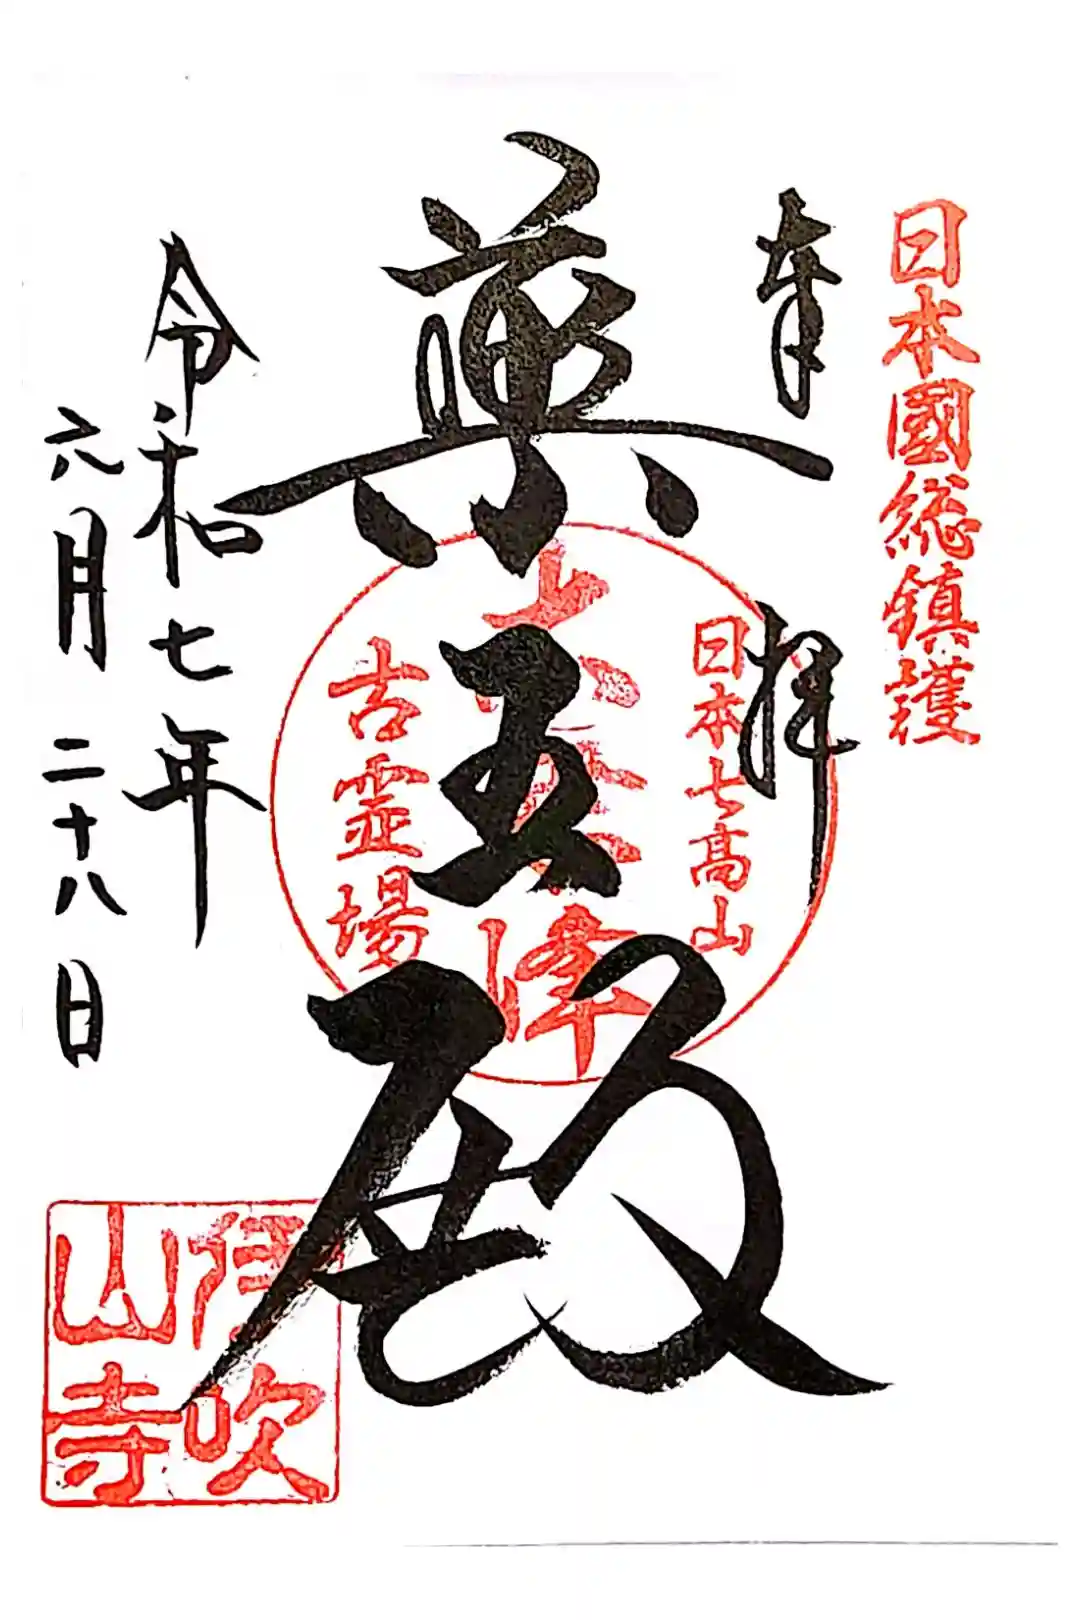 日本國総鎮護
奉拝
日本七高山
薬王殿
峰
古霊場
令和七年
六月二十八日
伊吹山寺